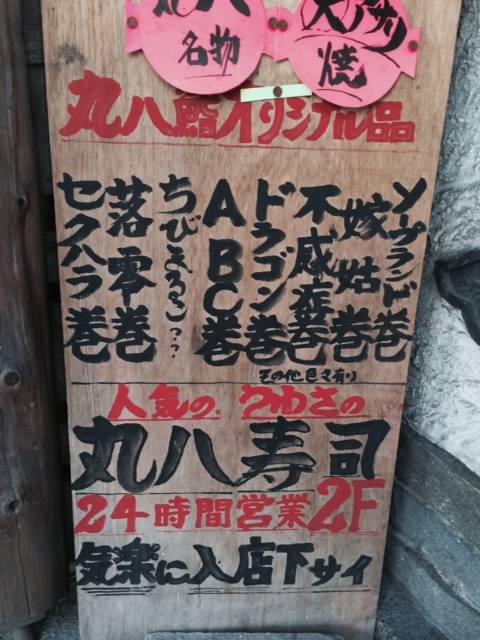 丸八
名物
大アサリ
焼
丸八鮨オリジナル品
ソープランド巻
嫁姑巻
不感症巻
ドラゴン巻
ABC巻
ちびまるこ??
落雫巻
セクハラ巻
その他色々有り
人気の、うわさの
丸八寿司
24時間営業2F
気楽に入店下サイ